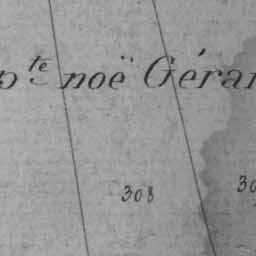 pte noë Gérar
308
30